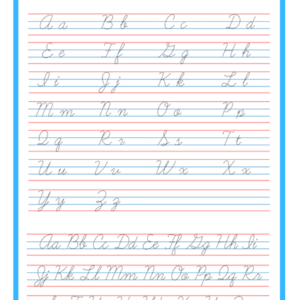 A a B b C c D d
E e F f G g H h
I i J j K k L l
M m N n O o P p
Q q R r S s T t
U u V v W x X x
Y y Z z
Aa Bb Cc Dd Ee Ff Gg Hh Ii
Jj Kk Ll Mm Nn Oo Pp Qq Rr